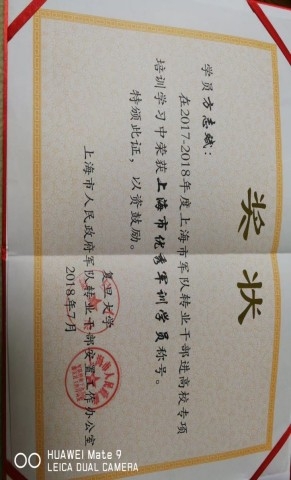 奖状
学员方志斌：
在2017-2018年度上海市军队转业干部进高校专项
培训学习中荣获上海市优秀军训学员称号。
特颁此证，以资鼓励。
复旦大学
上海市人民政府军队转业干部安置工作办公室
2018年7月
HUAWEI Mate 9
LEICA DUAL CAMERA